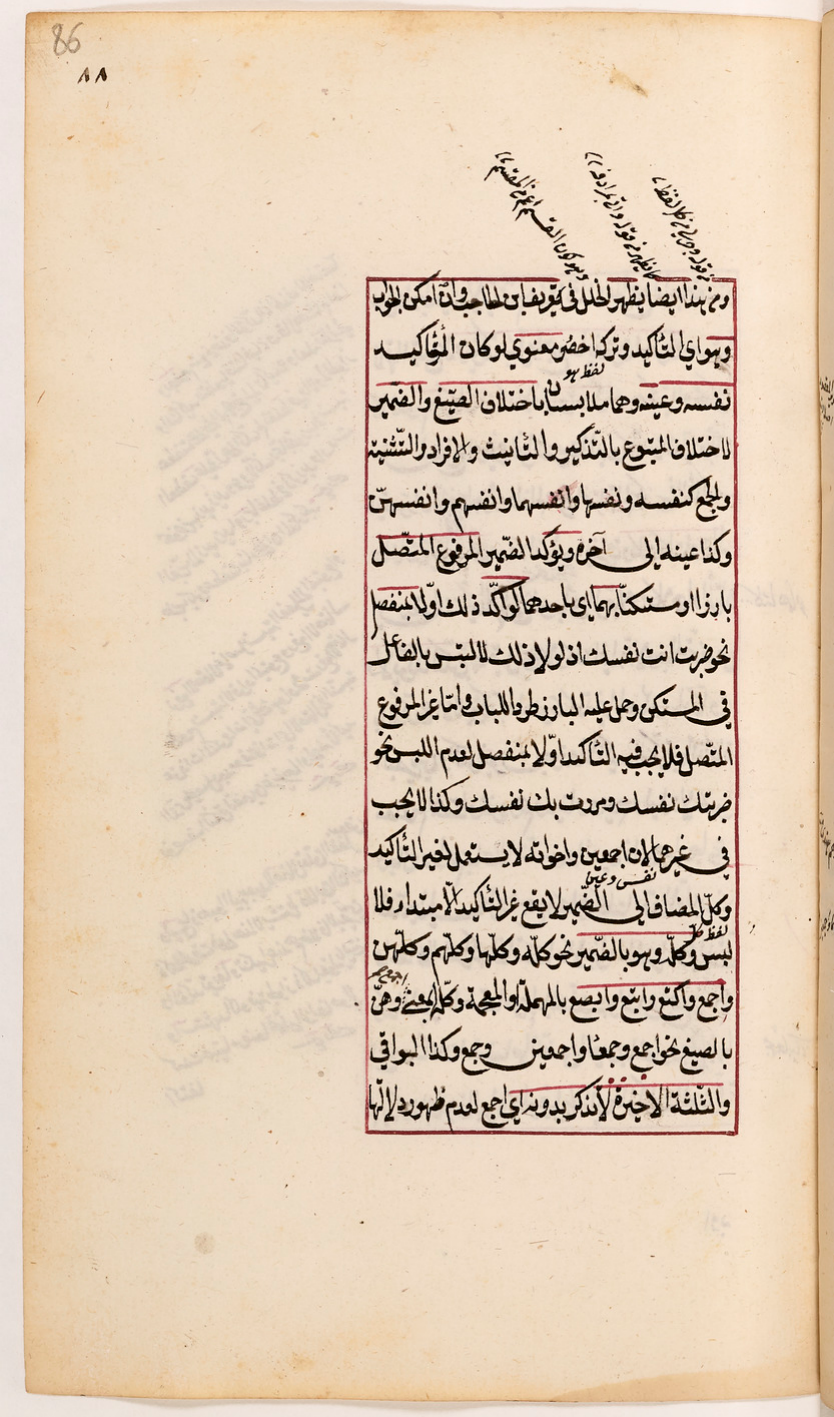 86
٨٨
ومن هذا ايضا يظهر الخلل في تعريفات الحاجب وان امكن الجواب
وهو اي التأكيد وتركه اخصر معنوي لو كان المؤكد
لفظ هو
نفسه وعينه وهما ملابسان باختلاف الصيغ والضمير
لاختلاف المتبوع بالتذكير والتأنيث والافراد والتثنية
والجمع كنفسه ونفسها وانفسهما وانفسهم وانفسهن
وكذا عينه الى آخره ويؤكد الضمير المرفوع المتصل
بارزا او مستكنا بهما اي باحدهما لو اكد ذلك اولا بمنفصل
نحو ضربت انت نفسك اذ لولا ذلك لالتبس بالفاعل
في المستكن وحمل عليه البارز طردا للباب واما غير المرفوع
المتصل فلا يجب فيه التأكيد اولا بمنفصل لعدم اللبس نحو
ضربتك نفسك ومررت بك نفسك وكذا لا يجب
في غيرهما لان اجمعين واخواته لا يستعمل لغير التأكيد
نفس وعين
وكل المضاف الى الضمير لا يقع غير التأكيد الا مبتداء فلا
لفظ كل
لبس وكله وهو بالضمير نحو كله وكلها وكلهم وكلهن
واجمع واكتع وابتع وابصع بالمهملة او المعجمة وكله بمعنى وهن
بالصيغ نحو اجمع وجمعا واجمعين وجمع وكذا البواقي
والثلثة الاخيرة لا تذكر بدونه اي اجمع لعدم ظهور دلالتها